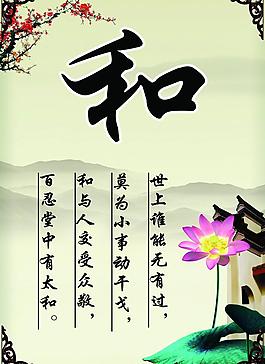 和
世上谁能无有过，
莫为小事动干戈，
和与人交受众敬，
百忍堂中有太和。